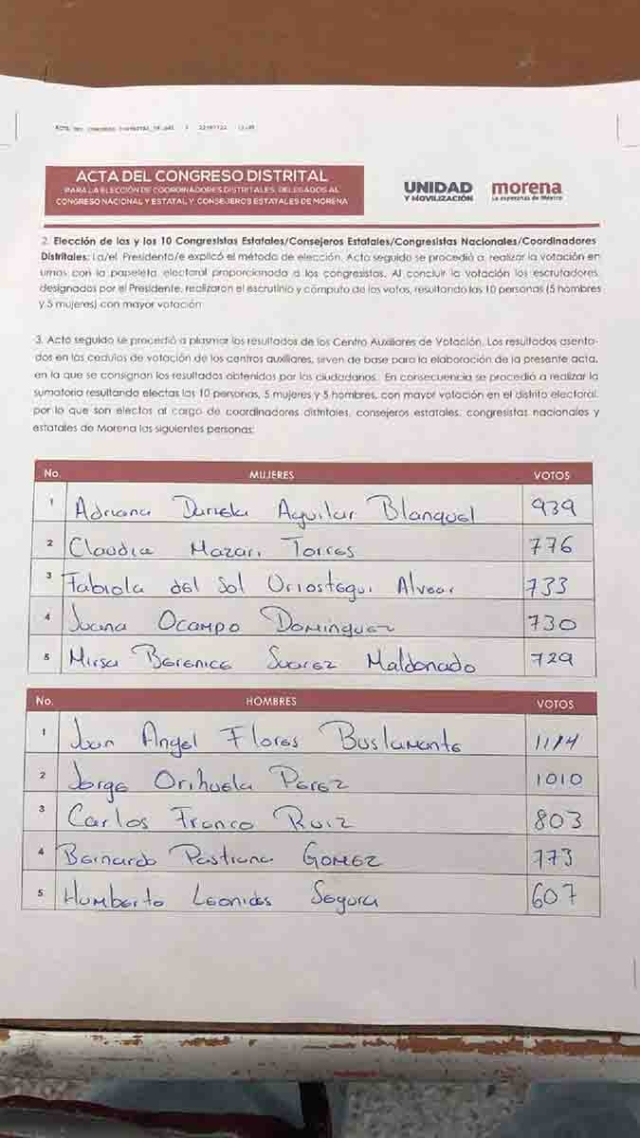 ACTA DEL CONGRESO DISTRITAL
PARA LA ELECCIÓN DE COORDINADORES DISTRITALES, DELEGADOS AL
CONGRESO NACIONAL Y ESTATAL Y CONSEJEROS ESTATALES DE MORENA
UNIDAD
Y MOVILIZACIÓN
morena
La esperanza de México
2. Elección de las y los 10 Congresistas Estatales/Consejeros Estatales/Congresistas Nacionales/Coordinadores
Distritales: La/el Presidenta/e explicó el método de elección. Acto seguido se procedió a realizar la votación en
urnas con la papeleta electoral proporcionada a los congresistas. Al concluir la votación los escrutadores
designados por el Presidente, realizaron el escrutinio y cómputo de los votos, resultando las 10 personas (5 hombres
y 5 mujeres) con mayor votación
3. Acto seguido se procedió a plasmar los resultados de los Centro Auxiliares de Votación. Los resultados asenta-
dos en las cedulas de votación de los centros auxiliares, sirven de base para la elaboración de la presente acta,
en la que se consignan los resultados obtenidos por los ciudadanos. En consecuencia se procedió a realizar la
sumatoria resultando electas las 10 personas, 5 mujeres y 5 hombres, con mayor votación en el distrito electoral,
por lo que son electos al cargo de coordinadores distritales, consejeros estatales, congresistas nacionales y
estatales de Morena las siguientes personas:
No. MUJERES VOTOS
1 Adriana Daniela Aguilar Blanquel 939
2 Claudia Mazari Torres 776
3 Fabiola del Sol Uriostegui Alvear 733
4 Juana Ocampo Dominguez 730
5 Mirsa Berenice Suarez Maldonado 729
No. HOMBRES VOTOS
1 Juan Angel Flores Bustamante 1114
2 Jorge Orihuela Perez 1010
3 Carlos Franco Ruiz 803
4 Bernardo Pastrana GOMEZ 773
5 Humberto Leonides Segura 607